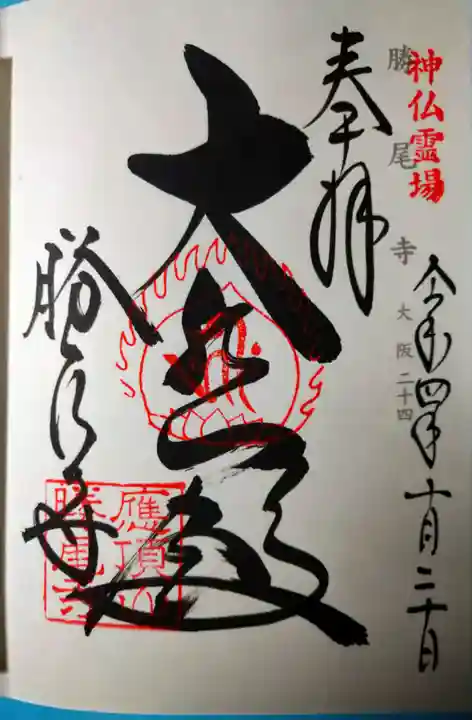 神仏霊場
勝尾寺 大阪二十四
令和四年十月二十日
奉拝
大悲殿
勝尾寺
應頂山
勝尾寺